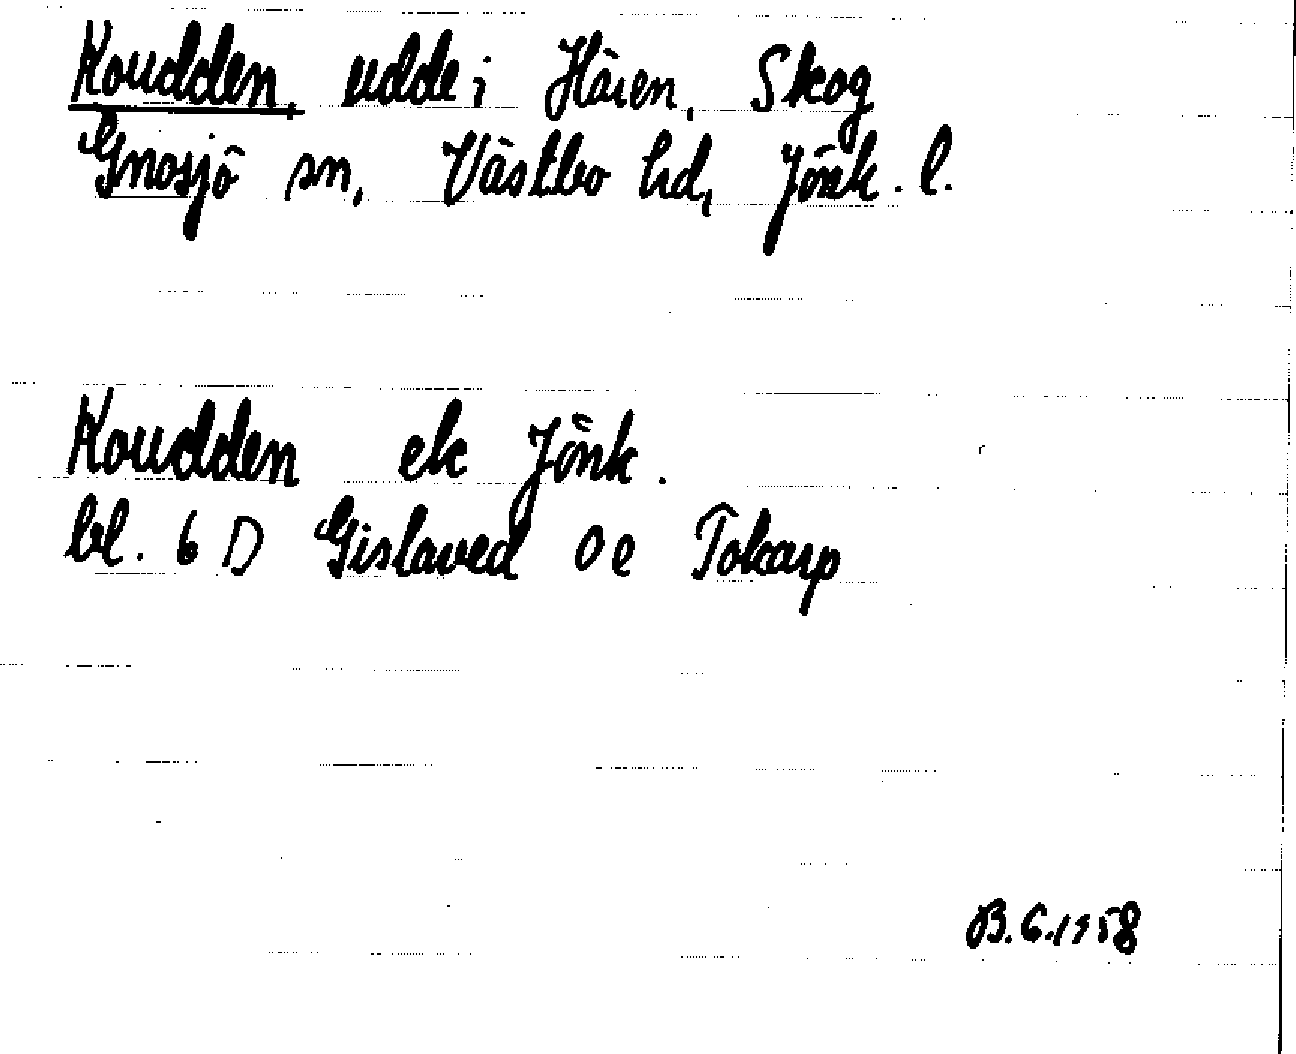 Koudden, udde i Hären, Skog
Gnosjö sn, Västbo hd, Jönk. l.
Koudden ek Jönk.
bl. 6 D Gislaved 0 e Tokarp
B. G. 1958